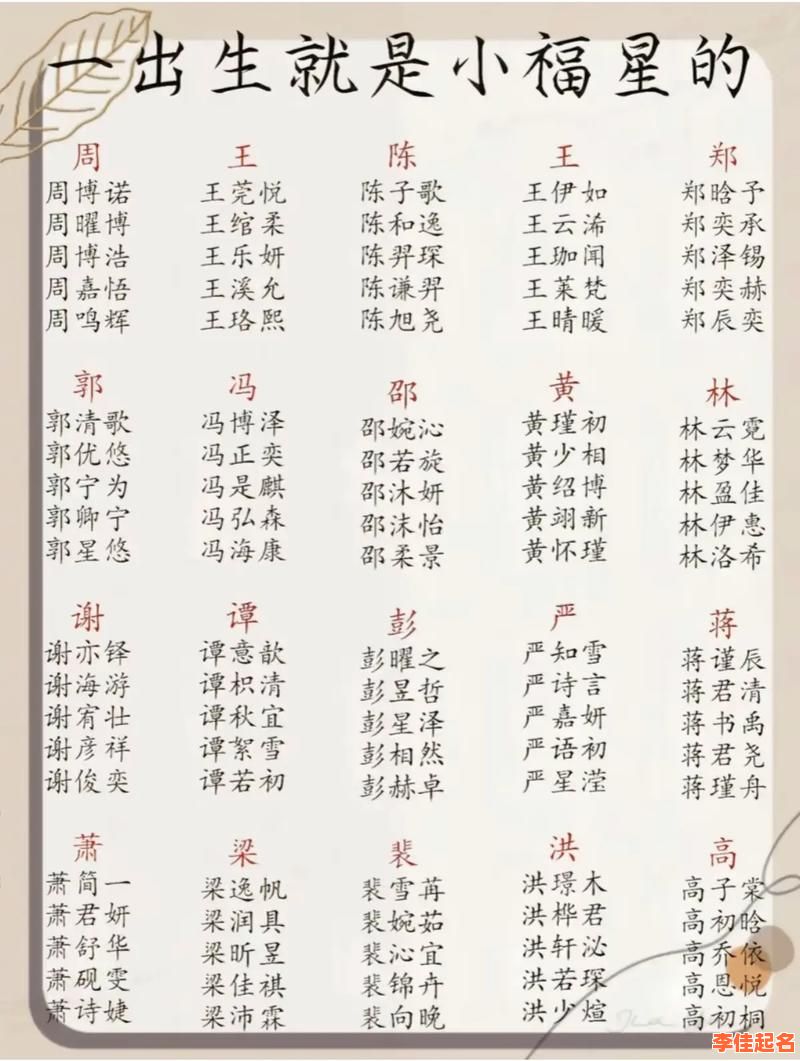 一出生就是小福星的
周 王 陈 王 郑
周博诺 王莞悦 陈子歌 王伊如 郑晗予
周曜博 王绾柔 陈和逸 王云浠 郑奕承
周博浩 王乐妍 陈羿琛 王珈闻 郑泽锡
周嘉悟 王溪允 陈谦羿 王莱梵 郑奕赫
周鸣辉 王珞熙 陈旭尧 王晴暖 郑辰奕
郭 冯 邵 黄 林
郭清歌 冯博泽 邵婉沁 黄瑾初 林云霓
郭优悠 冯正奕 邵若旋 黄少相 林梦华
郭宁为 冯是麒 邵沐妍 黄绍博 林盈佳
郭卿宁 冯弘森 邵沫怡 黄翊新 林伊惠
郭星悠 冯海康 邵柔景 黄怀瑾 林洛希
谢 谭 彭 严 蒋
谢亦铎 谭意歆 彭曜之 严知雪 蒋谨辰
谢海游 谭枳清 彭昱哲 严诗言 蒋君清
谢宥壮 谭秋宜 彭星泽 严嘉妍 蒋书禹
谢彦祥 谭絮雪 彭相然 严语初 蒋君尧
谢俊奕 谭若初 彭赫卓 严星滢 蒋瑾舟
萧 梁 裴 洪 高
萧简一 梁逸帆 裴雪苒 洪璟木 高子棠
萧君妍 梁润具 裴婉茹 洪桦君 高初晗
萧舒华 梁昕昱 裴沁宜 洪轩泌 高乔依
萧砚雯 梁佳祺 裴锦卉 洪若琛 高恩悦
萧诗婕 梁沛霖 裴向晚 洪少煊 高初桐
李佳起名